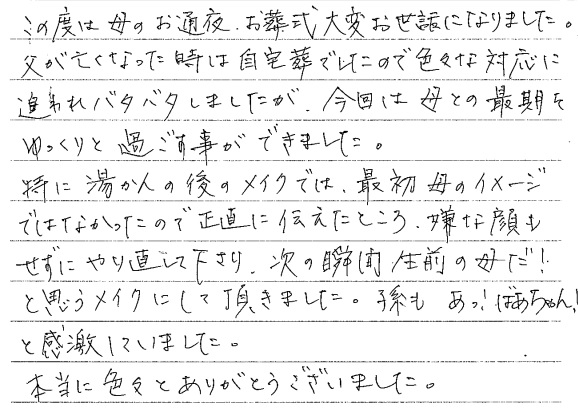 この度は母のお通夜、お葬式大変お世話になりました。
父が亡くなった時は自宅葬でしたので色々な対応に
追われバタバタしましたが、今回は母との最期を
ゆっくりと過ごす事ができました。
特に湯かんの後のメイクでは、最初母のイメージ
ではなかったので正直に伝えたところ、嫌な顔も
せずにやり直して下さり、次の瞬間生前の母だ！
と思うメイクにして頂きました。孫も あっ！ばあちゃん！
と感激していました。
本当に色々とありがとうございました。